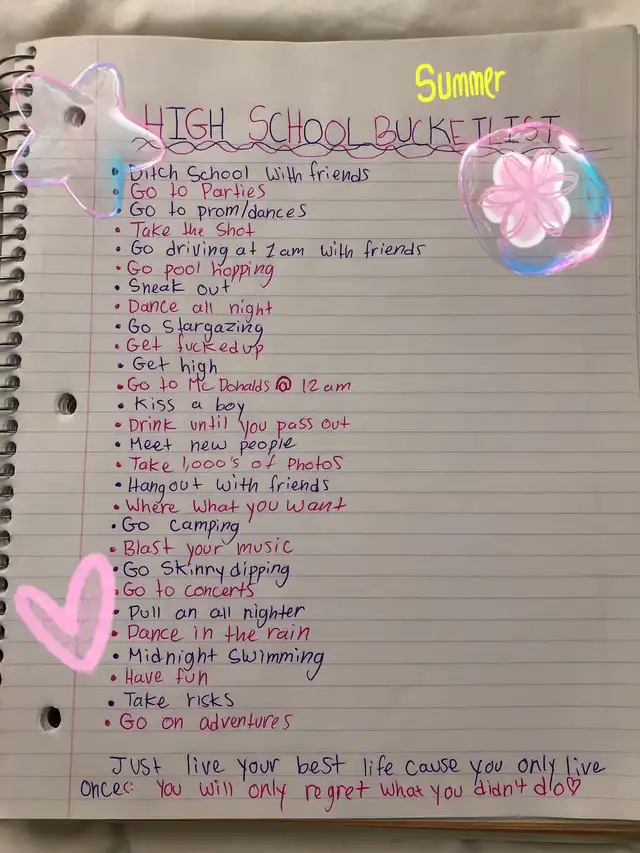 Summer
HIGH SCHOOL BUCKETLIST
• Ditch School with friends
• Go to Parties
• Go to prom/dances
• Take the shot
• Go driving at 1am with friends
• Go pool hopping
• Sneak out
• Dance all night
• Go Stargazing
• Get fucked up
• Get high
• Go to McDonalds @ 12 am
• Kiss a boy
• Drink until you pass out
• Meet new people
• Take 1,000's of Photos
• Hangout with friends
• Where what you want
• Go camping
• Blast your music
• Go Skinny dipping
• Go to concerts
• Pull an all nighter
• Dance in the rain
• Midnight swimming
• Have fun
• Take risks
• Go on adventures
Just live your best life cause you only live
once(: You will only regret what you didn't do♡